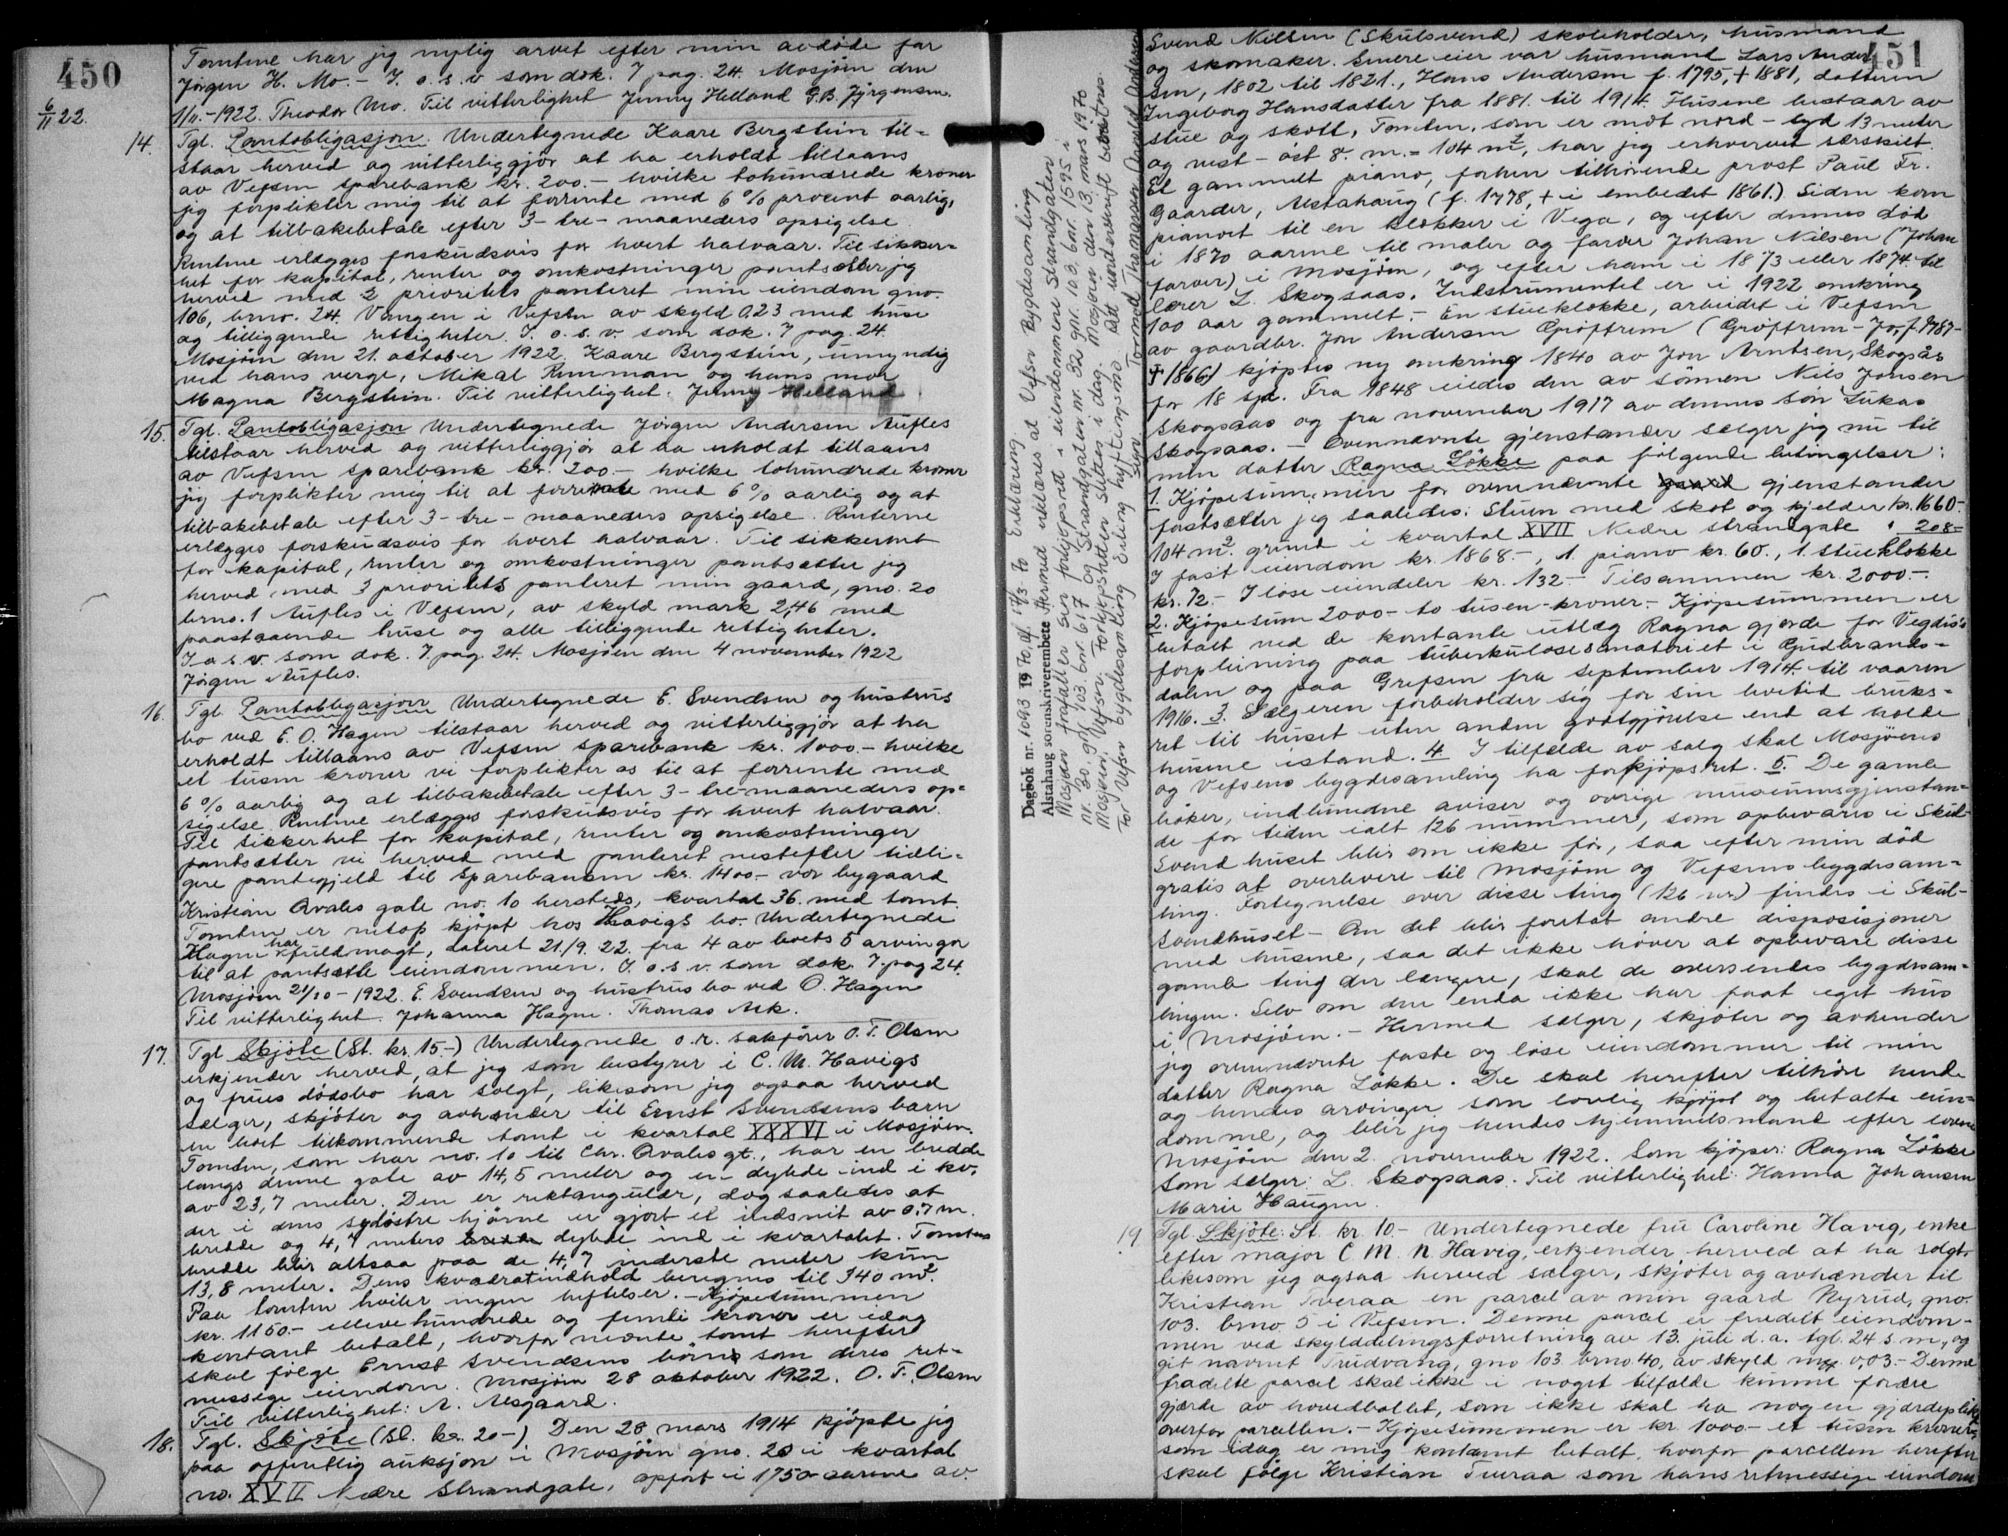 450
Tomtene har jeg nylig arvet efter min avdøde far
Jørgen H. Mo. - J. o. s. v. som dok. 7 pag. 24. Mosjøen den
1/11.-1922. Theodor Mo. Til vitterlighet Jenny Helland G.B. Jørgensen.
6/11 22.
14. Tgl. Pantobligasjon. Undertegnede Kaare Bergstein til-
staar herved og vitterliggjør at ha erholdt tillaans
av Vefsen Sparebank kr. 200.- hvilke tohundrede kroner
jeg forplikter mig til at forrente med 6% procent aarlig,
og at tilbakebetale efter 3- tre- maaneders opsigelse
Rentene erlægges forskudsvis for hvert halvaar. Til sikker-
het for kapital, renter og omkostninger pantsætter jeg
herved med 2 prioritets panteret min eiendom gno.
106, brno. 24. Vangen i Vefsen av skyld 0,23 med huse
og tilliggende rettigheter. J. o. s. v. som dok. 7 pag. 24.
Mosjøen den 21. oktober 1922. Kaare Bergstein, umyndig
ved hans verge, Mikal Remman og hans mor
Magna Bergstein. Til vitterlighet: Jenny Helland
15. Tgl. Pantobligasjon Undertegnede Jørgen Andersen Aufles
tilstaar herved og vitterliggjør at ha erholdt tillaans
av Vefsen Sparebank kr. 200.- hvilke tohundrede kroner
jeg forplikter mig til at forrente med 6% aarlig og at
tilbakebetale efter 3- tre- maaneders opsigelse. Renterne
erlægges forskudsvis for hvert halvaar. Til sikkerhet
for kapital, renter og omkostninger pantsætter jeg
herved med 3 prioritets panteret min gaard, gno. 20
brno. 1 Aufles i Vefsen, av skyld mark 2,46 med
paastaaende huse og alle tilliggende rettigheter.
J o s. v. som dok. 7 pag. 24. Mosjøen den 4 november 1922
Jørgen Aufles.
16. Tgl. Pantobligasjon Undertegnede E. Svendsen og hustrus
bo ved E. O. Hagen tilstaar herved og vitterliggjør at ha
erholdt tillaans av Vefsen Sparebank kr. 1000.- hvilke
et tusen kroner vi forplikter os til at forrente med
6% aarlig og at tilbakebetale efter 3- tre-maaneders op-
sigelse. Rentene erlægges forskudsvis for hvert halvaar.
Til sikkerhet for kapital, renter og omkostninger
pantsætter vi herved med panteret nestefter tidli-
gere pantegjeld til Sparebanken kr. 1400.- vor bygaard
Kristian Qvales gate no. 10 hersteds, kvartal 36. med tomt.
Tomten er netop kjøpt hos Havigs bo. Undertegnede
Hagen har fuldmagt, dateret 21/9. 22. fra 4 av boets 5 arvinger
til at pantsætte eiendommen. J. o. s. v. som dok. 7. pag 24.
Mosjøen 21/10 - 1922. E. Svendsen og hustrus bo ved O. Hagen
Til vitterlighet. Johanna Hagen. Thomas Ask.
17. Tgl Skjøte (St. kr. 15.-) Undertegnede o. r. sakfører O. T. Olsen
erkjender herved, at jeg som bestyrer i C. M. Havigs
og frues dødsbo har solgt, likesom jeg ogsaa herved
sælger, skjøter og avhænder til Ernst Svendsens barn
en boet tilkommende tomt i kvartal XXXVI i Mosjøen.
Tomten, som har no. 10 til Chr. Qvales gt., har en bredde
langs denne gate av 14,5 meter og en dybde ind i kv.
av 23,7 meter. Den er rektangulær, dog saaledes at
der i dens sydøstre hjørne er gjort et indsnit av 0,7 m.
bredde og 4,7 meters dybde ind i kvartalet. Tomtens
bredde blir altsaa paa de 4,7 inderste meter kun
13,8 meter. Dens kvadratindhold beregnes til 340 m².
Paa tomten hviler ingen heftelser. - Kjøpesummen
kr. 1150.- ellevehundrede og femti kroner er idag
kontant betalt, hvorfor nævnte tomt herefter
skal følge Ernst Svendsens børn som deres ret-
messige eiendom. Mosjøen 28 oktober 1922. O. T. Olsen
Til vitterlighet: A. Alsgaard.
18. Tgl. Skjøte (St. kr. 20-) Den 28 mars 1914 kjøpte jeg
paa offentlig auksjon i Mosjøen gno. 20 i kvartal
no. XVII Nedre Strandgate, opført i 1750 aarene av
Dagbok nr. 1093 1970, d. 17/3-70 Erklæring
Alstahaug sorenskriverembete Hermed erklæres at Vefsn Bygdesamling,
Mosjøen frafaller sin forkjøpsrett i eiendommene Strandgaten
nr. 30, gnr. 103 bnr. 617 og Strandgaten nr. 32 gnr. 103 bnr. 1595 i
Mosjøen, Vefsn. Forkjøpsretten slettes i dag. Mosjøen den 13. mars 1970
For Vefsn bygdesamling Erling Heftingsmo Rett underskrift bevitnes.
Sign Tormod Thomassen Arnold Andersen
451
Svend Nilsen (Skulsvend) skoleholder, husmand
og skomaker. Senere eier var husmand Lars Ander-
sen, 1802 til 1821., Hans Andersen f. 1795, + 1881, datteren
Ingeborg Hansdatter fra 1881. til 1914. Husene bestaar av
stue og skott, Tomten, som er mot nord - syd 13 meter
og vest - øst 8. m. = 104 m², har jeg erhvervet særskilt.
Et gammelt piano, forhen tilhørende prost Paul Fr.
Gaarder, Alstahaug (f. 1778, + i embedet 1861.) Siden kom
pianoet til en klokker i Vega, og efter dennes død
i 1870 aarene til maler og farver Johan Nilsen (Johan
farver) i Mosjøen, og efter ham i 1873 eller 1874. til
lærer L. Skogsaas. Instrumentet er i 1922 omkring
100 aar gammelt. - En stueklokke, arbeidet i Vefsen
av gaardbr. Jon Andersen Grøftrem (Grøftrem-Jo, f. 1787-
+ 1866) kjøptes ny omkring 1840 av Jon Arntsen, Skogsås
for 18 spd. Fra 1848 eiedes den av sønnen Nils Jonsen
Skogsaas og fra november 1917 av dennes søn Lukas
Skogsaas. - Ovennævnte gjenstander sælger jeg nu til
min datter Ragna Løkke paa følgende betingelser:
1. Kjøpesummen for ovennævnte gjenstander
fastsætter jeg saaledes: Stuen med skot og kjelder kr. 1660.-
104 m². grund i kvartal XVII Nedre strandgate " 208.-
I fast eiendom kr. 1868.-, 1. piano kr. 60., 1. stueklokke
kr. 72.- I løse eiendeler kr. 132.- Tilsammen kr. 2000.-
2. Kjøpesum 2000.- to tusen-kroner.- Kjøpesummen er
betalt ved de kontante utlæg Ragna gjorde for Vegdis's
forpleining paa tuberkulosesanatoriet i Gudbrands-
dalen og paa Grefsen fra september 1914. til vaaren
1916. 3. Sælgeren forbeholder sig for sin levetid bruks-
ret til huset uten anden godtgjørelse end at holde
husene istand. 4 I tilfælde av salg skal Mosjøens
og Vefsens bygdesamling ha forkjøpsret. 5. De gamle
bøker, indbundne aviser og øvrige museumsgjenstan-
de for tiden ialt 126 nummer, som opbevares i Skul-
svend huset blir om ikke før, saa efter min død
gratis at overlevere til Mosjøen og Vefsens bygdesam-
ling. Fortegnelse over disse ting (126 nr.) findes i Skul-
svendhuset. - Om det blir foretat andre disposisjoner
med husene, saa det ikke høver at opbevare disse
gamle ting der længere, skal de oversendes bygdesam-
lingen. Selv om den enda ikke har faat eget hus
i Mosjøen. - Hermed sælger, skjøter og avhender
jeg ovennævnte faste og løse eiendommer til min
datter Ragna Løkke. De skal herefter tilhøre hende
og hendes arvinger som lovlig kjøpt og betalte eien-
domme, og blir jeg hendes hjemmelsmand efter loven.
Mosjøen den 2. november 1922. Som kjøper: Ragna Løkke
Som sælger: L. Skogsaas. Til vitterlighet: Hanna Johansen
Marie Haugen.
19 Tgl Skjøte: St. kr. 10.- Undertegnede fru Caroline Havig, enke
efter major C. M. N. Havig, erkjender herved at ha solgt
likesom jeg ogsaa herved sælger, skjøter og avhænder til
Kristian Tveraa en parcel av min gaard Nyrud, gno.
103. brno 5 i Vefsen. Denne parcel er fradelt eiendom-
men ved skylddelingsforretning av 13. juli d. a. tgl. 24 s. m., og
git navnet Trudvang, gno 103 brno 40, av skyld mrk 0,03.- Denne
fradelte parcel skal ikke i noget tilfælde kunne fordre
gjærde av hovedbøllet, som ikke skal ha nogen gjærdeplikt
overfor parcellen. - Kjøpesummen er kr. 1000.- et tusen kroner,
som idag er mig kontant betalt, hvorfor parcellen herefter
skal følge Kristian Tveraa som hans retmessige eiendom